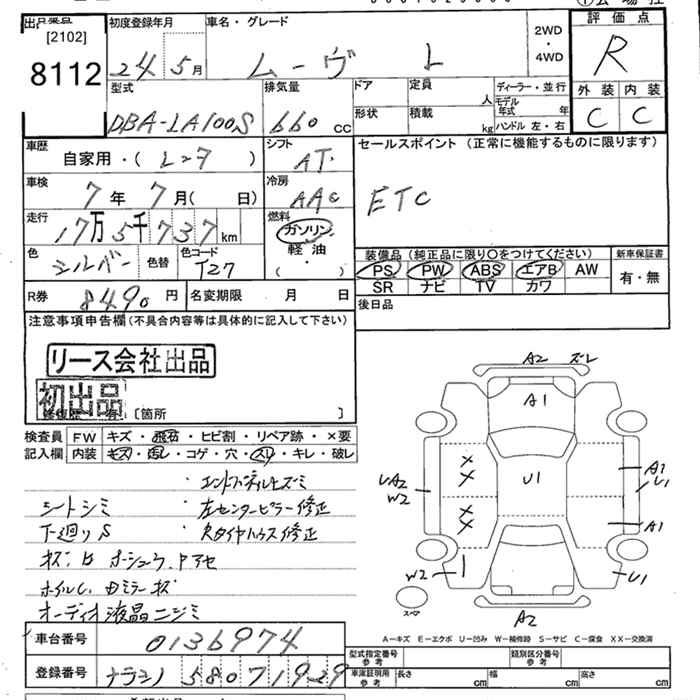 [2102]
8112
初度登録年月
24 5月
車名・グレード
ムーヴ L
2WD
・
4WD
評価点
R
外装 内装
C C
型式
DBA-LA100S
排気量
660 cc
ドア
定員
人
形状
積載
kg
ディーラー・並行
モデル年式 年
ハンドル 左・右
車歴
自家用・( レンタ )
シフト
AT
セールスポイント (正常に機能するものに限ります)
ETC
車検
7年 7月( 日)
冷房
AAC
走行
17万5千737km
燃料
ガソリン
軽油
( ・ )
色
シルバー
色替
色コード
T27
装備品 (純正品に限り○をつけてください)
PS PW ABS エアB AW
SR ナビ TV カワ
新車保証書
有・無
R券
8490円
名変期限 月 日
後日品
注意事項申告欄(不具合内容等は具体的に記入して下さい)
リース会社出品
初出品
有・〔箇所 〕
検査員
記入欄
FW キズ・飛石・ヒビ割・リペア跡・×要
内装 キズ・汚レ・コゲ・穴・スレ・キレ・破レ
シートシミ
左センターピラー修正
下廻りS
タイヤハウス修正
オーディオ液晶ニジミ
車台番号
0136974
登録番号
ナラシノ 580 71929
A2 ズレ
A1
U1
UA2
W2
A1
U1
A1
W2
U1
A2
スペア
A-キズ E-エクボ U-凹み W-補修跡 S-サビ C-腐食 XX-交換済
型式指定番号
参考
類別区分番号
参考
車庫証明用
参考
長さ cm
幅 cm
高さ cm